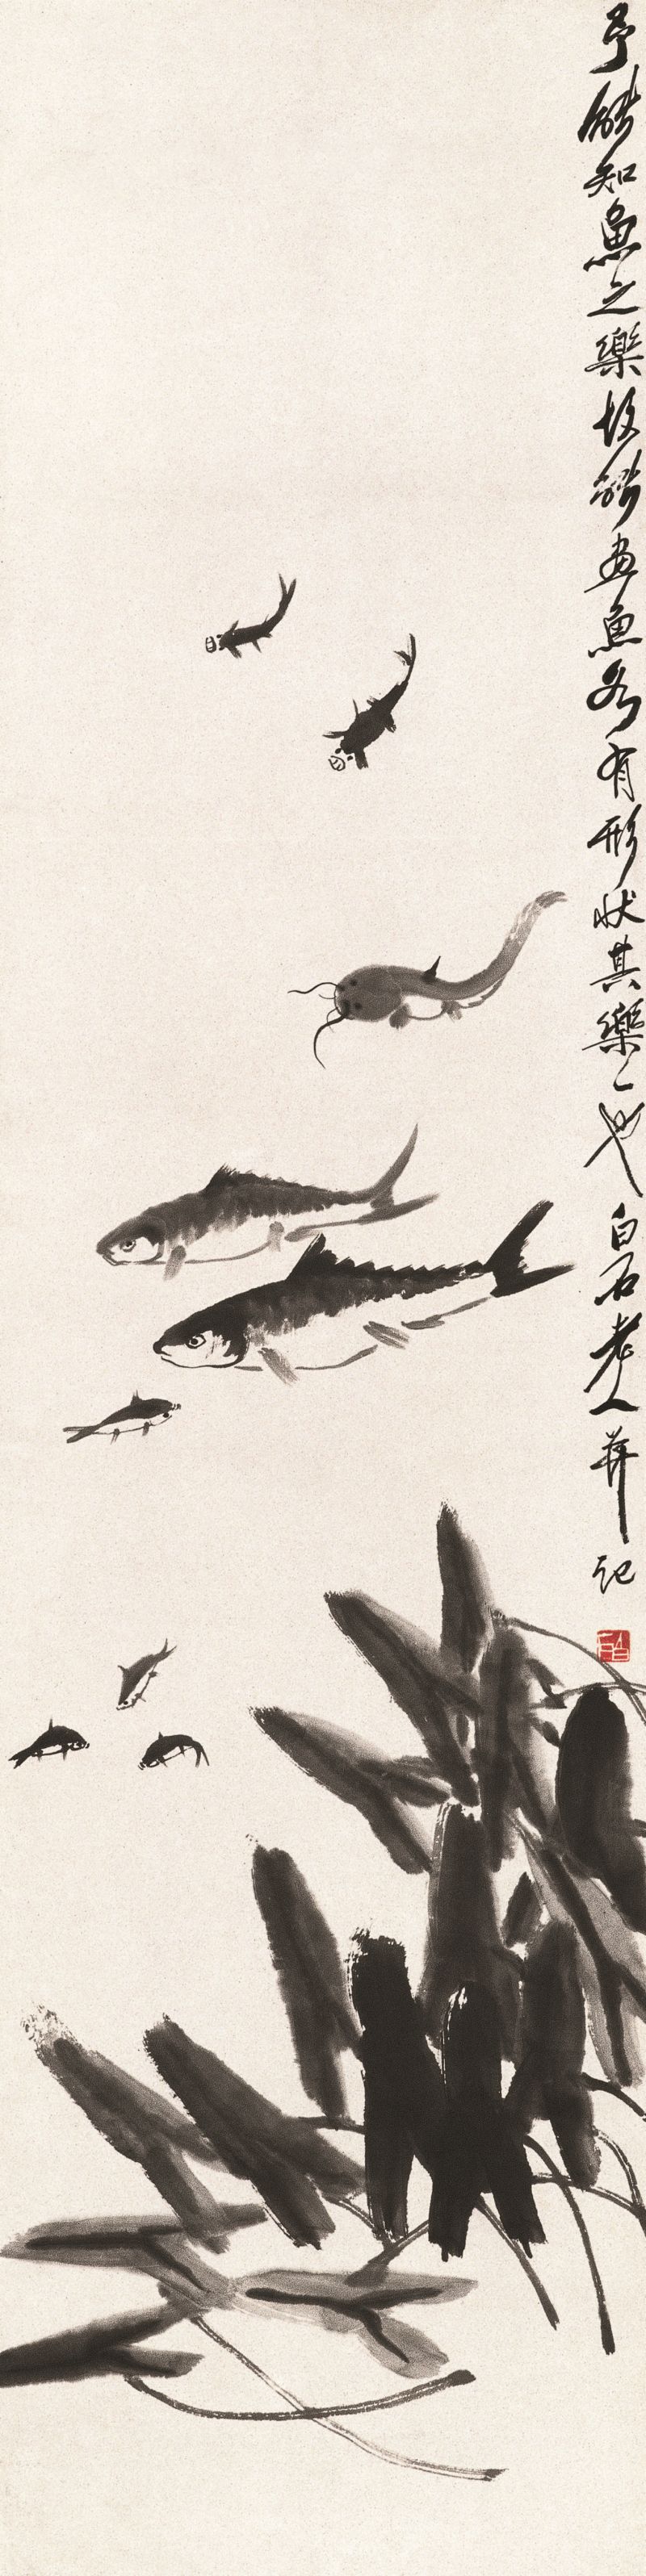 予能知魚之樂故能畫魚各有形狀其樂一也白石老人并記
白石